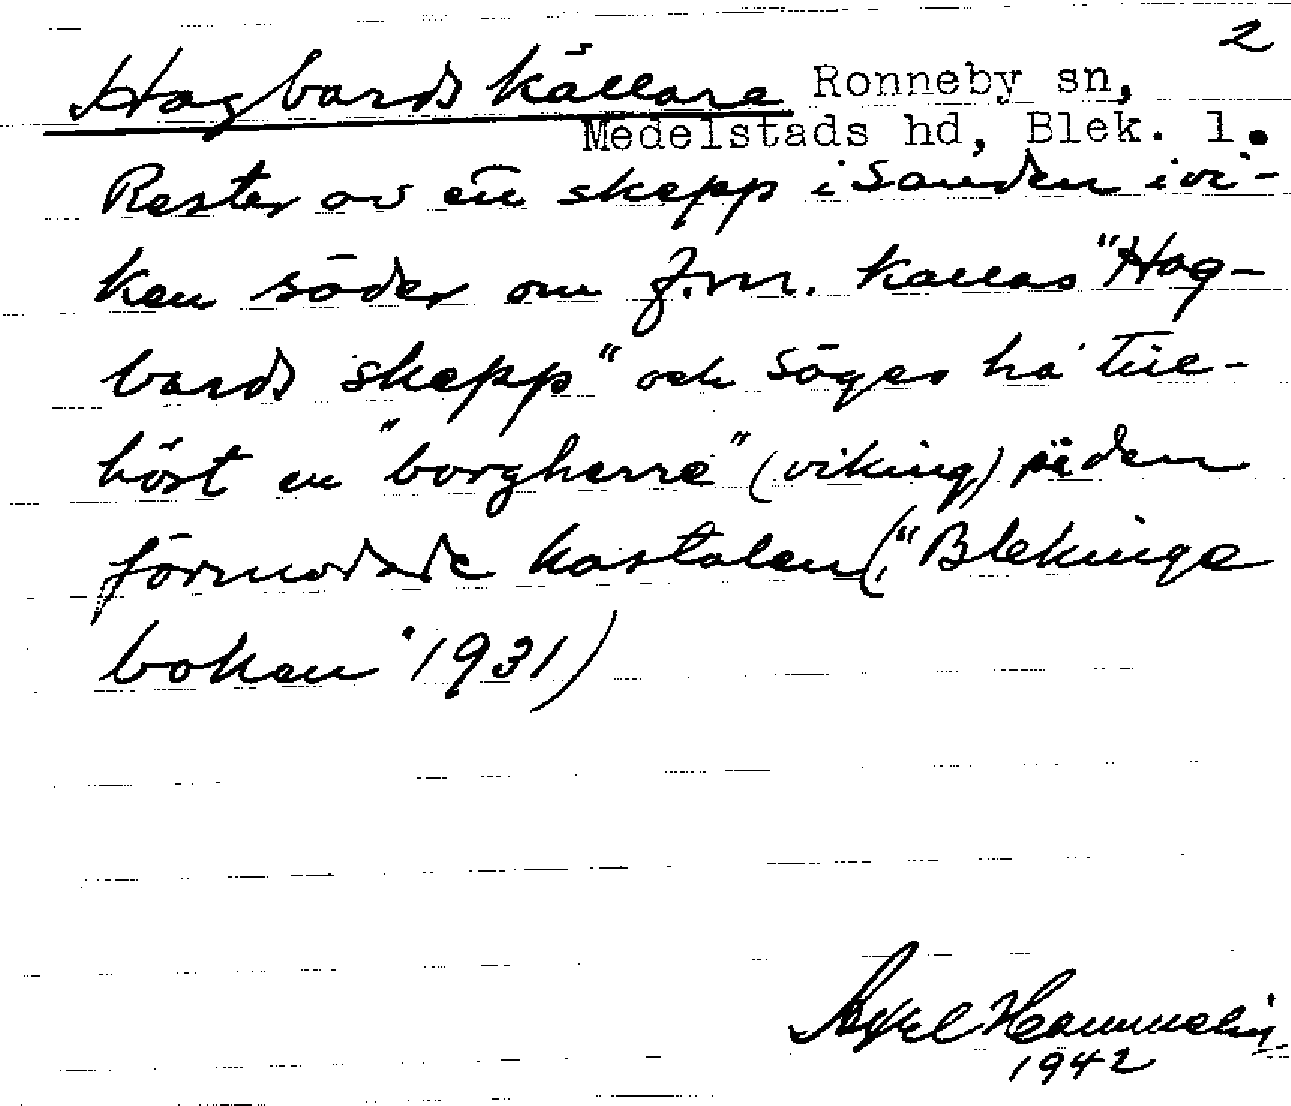 2
Hagbards källare Ronneby sn,
Medelstads hd, Blek. l.
Rester av ett skepp i sanden i vi-
ken söder om f.m. kallas "Hag-
bards skepp" och säges ha till-
hört en "borgherre" (viking) på den
förmodade kastalen ("Blekinge
boken" 1931)
Axel
1942